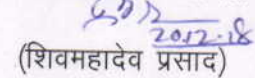 20.12.18
(शिवमहादेव प्रसाद)